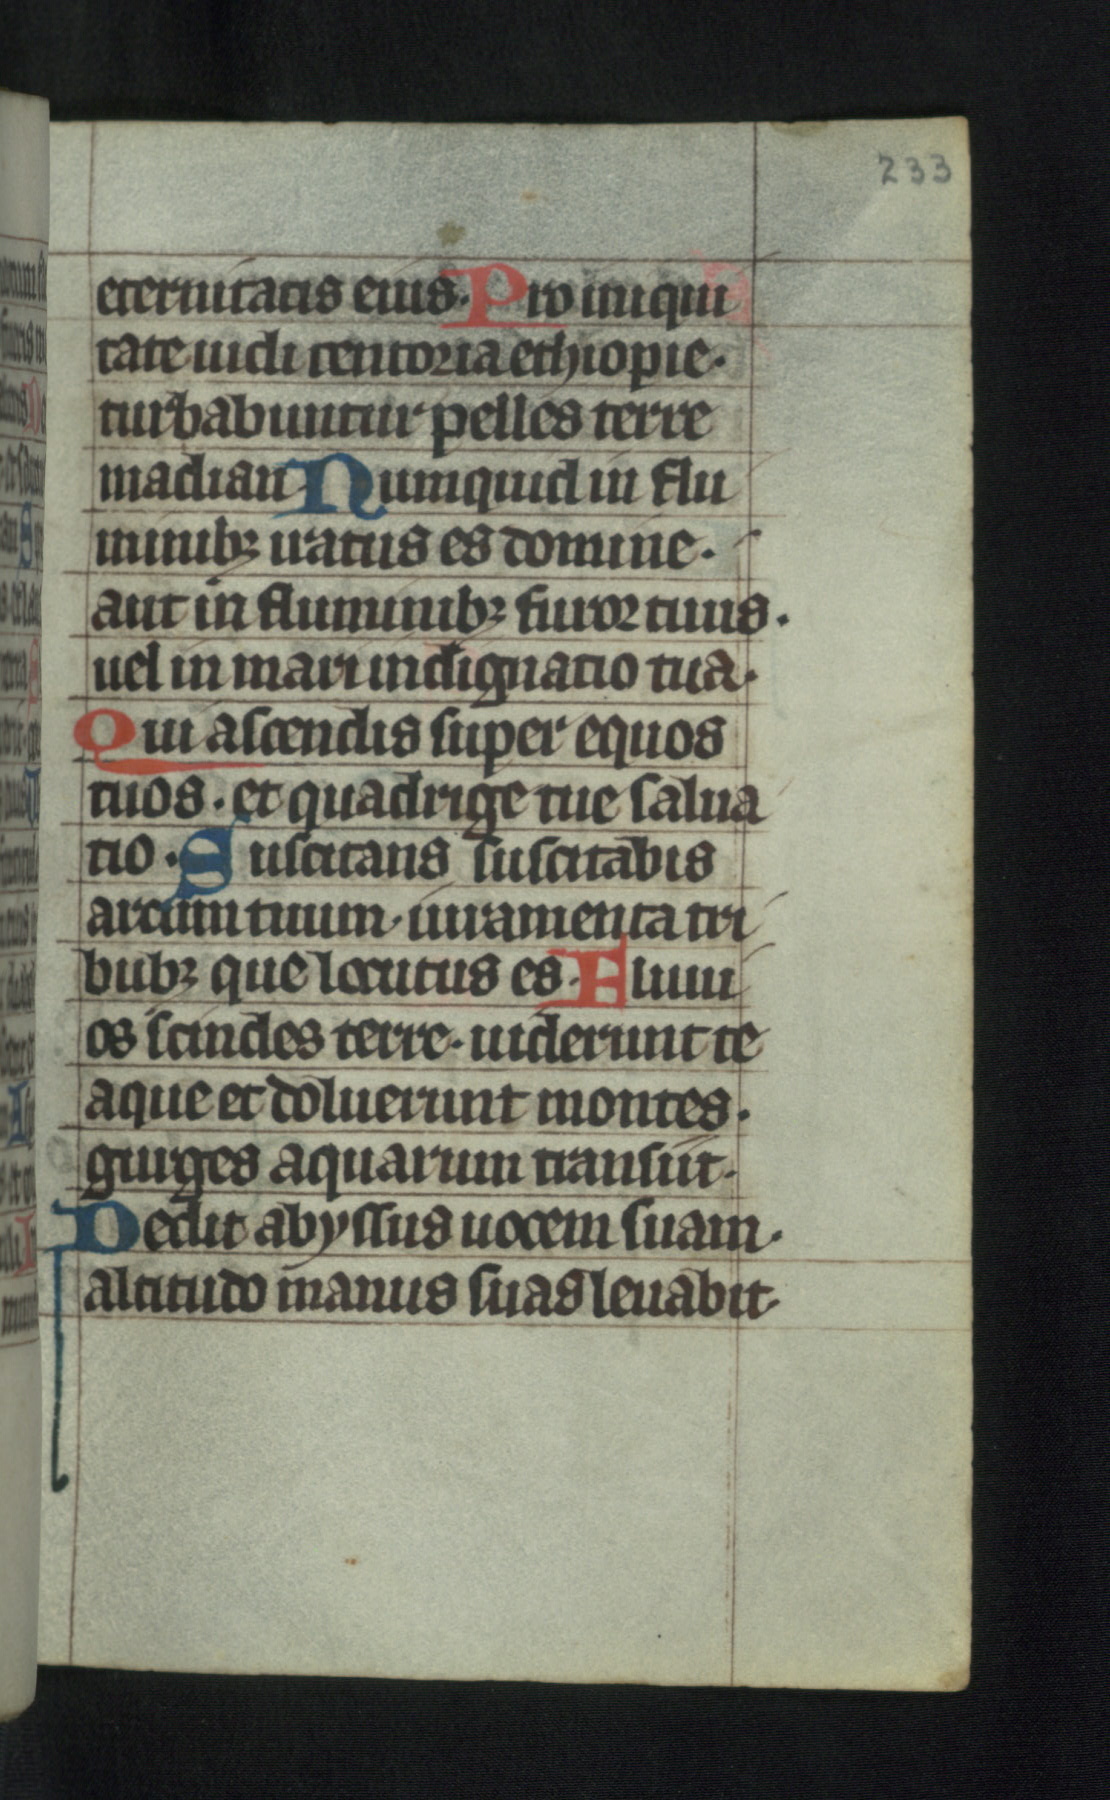 233
eternitatis eius. Pro iniqui
tate uidi tentoria ethiopie.
turbabuntur pelles terre
madian Numquid in flu
minibꝫ iratus es domine.
aut in fluminibꝫ furor tuus.
uel in mari indignatio tua.
Qui ascendis super equos
tuos. et quadrige tue salua
tio. Suscitans suscitabis
arcum tuum. iuramenta tri
bubꝫ que locutus es. Fluui
os scindes terre. uiderunt te
aque et doluerunt montes.
gurges aquarum transiit.
Dedit abyssus uocem suam.
altitudo manus suas leuabit.